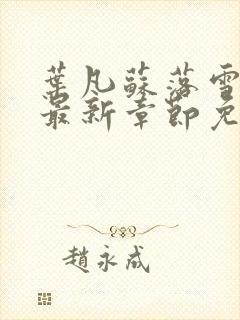 葉凡蘇落雪
最新章節免
趙永成